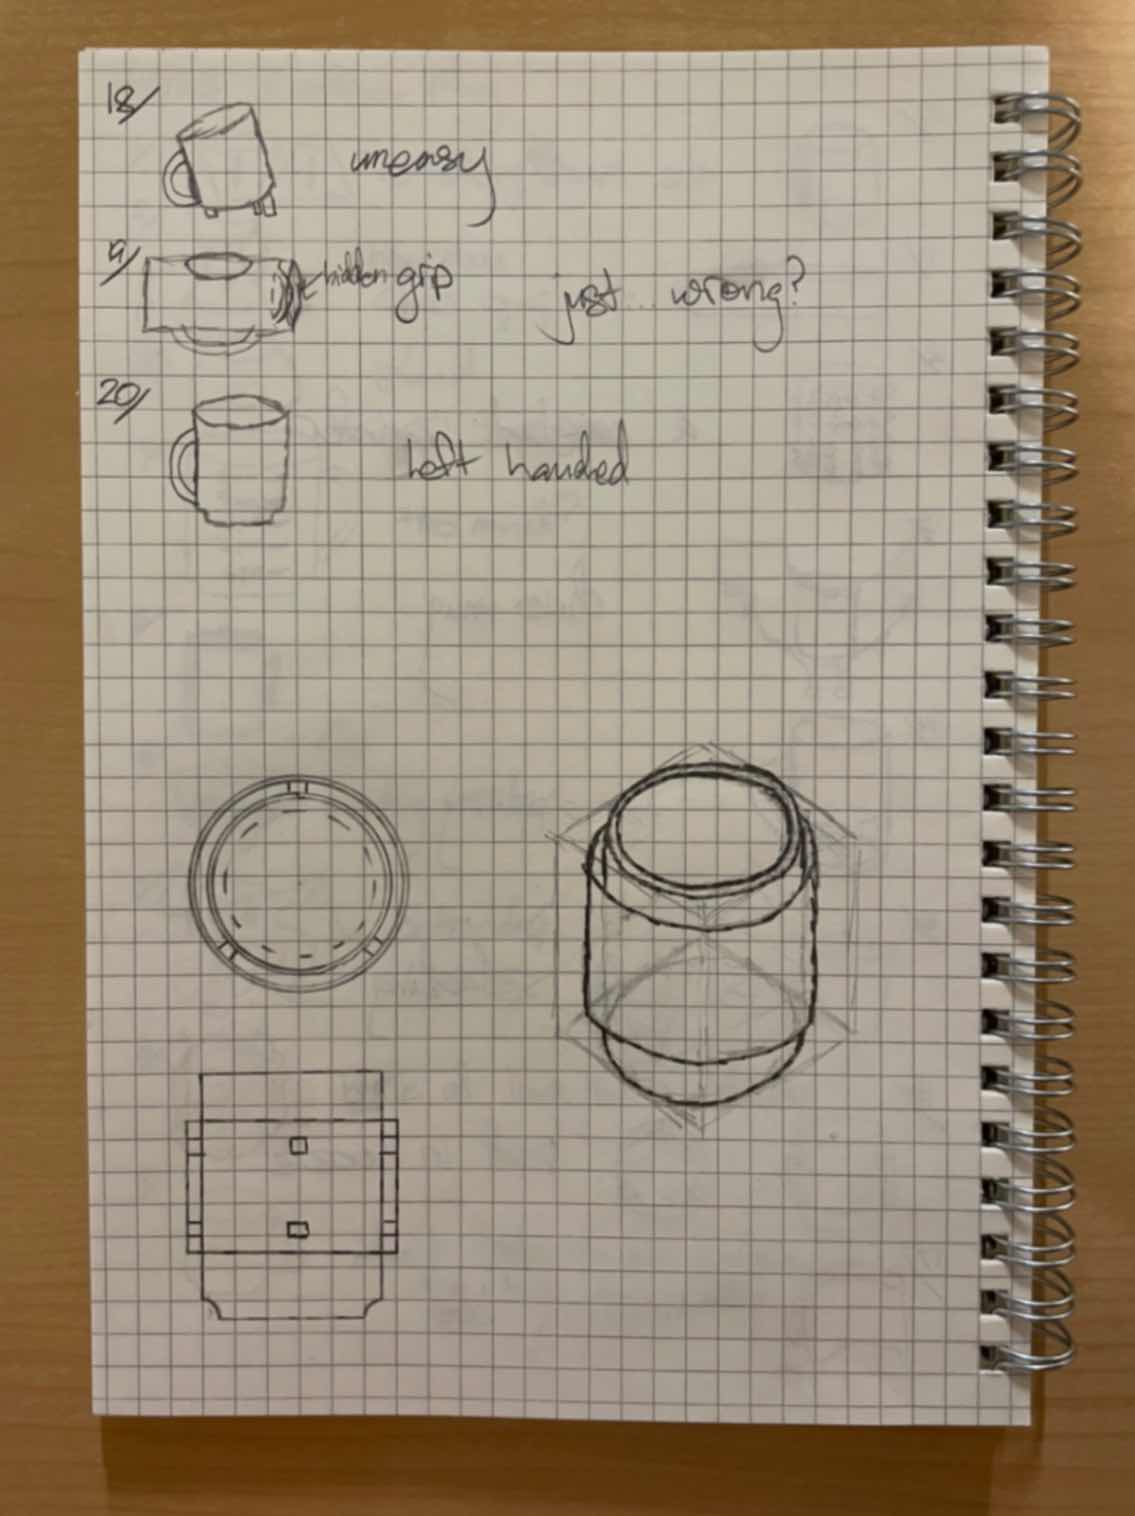 18/ uneasy
9/ hidden grip just... wrong?
20/ Left handed